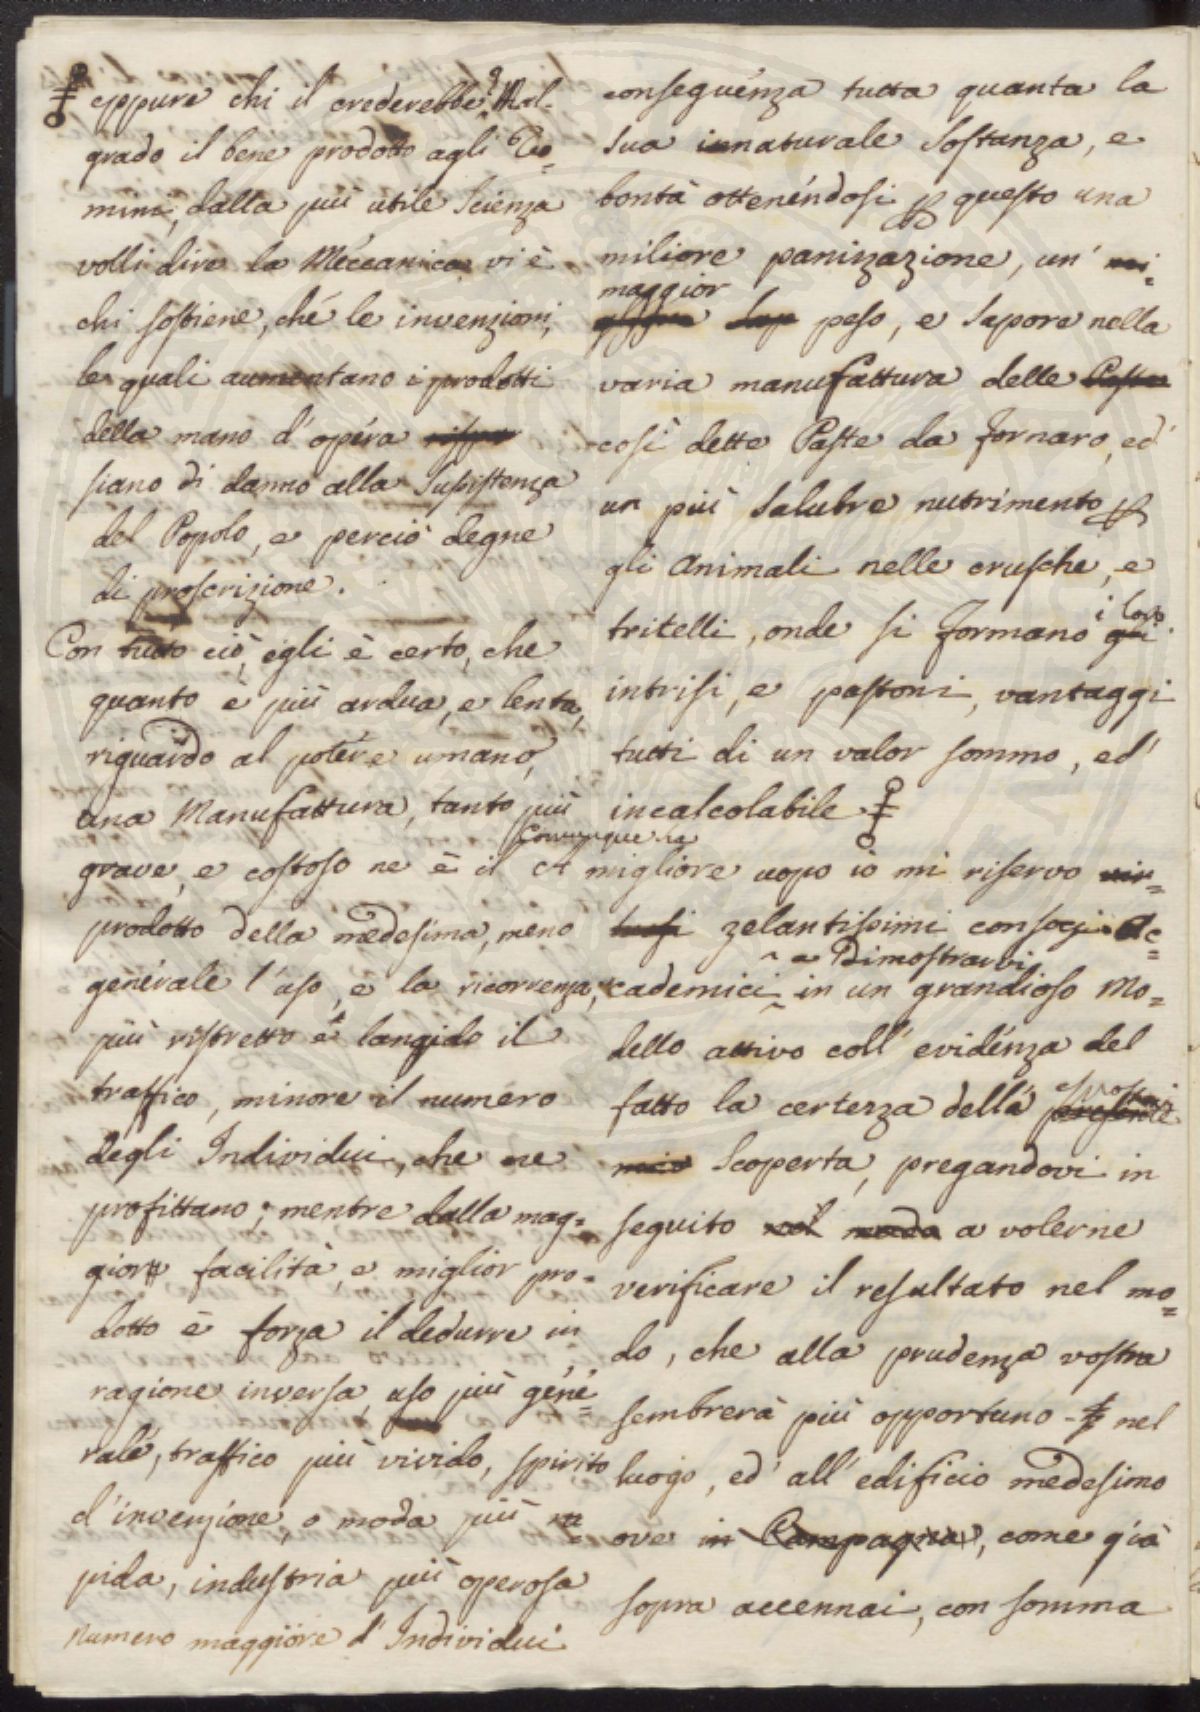 eppure chi il crederebbe? Mal-
grado il bene prodotto agli Uo-
mini, dalla più utile Scienza
volli dire la Meccanica vi è
chi sostiene, ché le invenzioni,
le quali aumentano i prodotti
della mano d'opéra
siano di danno alla Susistenza
del Popolo, e perciò degne
di proscrizione.
Con tutto ciò, egli è certo, che
quanto è più ardua, e lenta,
riguardo al potére umano,
una Manufattura, tanto più
grave, e costoso ne è il
prodotto della medesima, meno
generale l'uso, e la ricorrenza,
più ristretto e langido il
traffico, minore il numero
degli Individui, che ne
profittano; mentre dalla mag=
gior facilità, e miglior pro=
dotto è forza il dedurre in
ragione inversa, uso più géné=
ralé, traffico più vivido, spirito
d'invenzione, o moda più ra=
pida, industria più operosa
numero maggiore d'Individui
conseguénza tutta quanta la
sua innaturale Sostanza, e
bontà ottenéndosi per questo una
miliore panizzazione, un' mi=
maggior
gliore Sap peso, e Sapore nella
varia manufattura delle Paste
così dette Paste da fornaro, ed'
un più Salubre nutrimento per
gli Animali nelle crusche, e
i loro
tritelli, onde si formano gli
intrisi, e pastoni, vantaggi
tutti di un valor sommo, ed'
incalcolabile
Comunque sia
A migliore uopo io mi riservo vir=
tuosi zelantissimi consocj Ac=
a Dimostrarvi
cademici in un grandioso Mo=
dello attivo coll'evidénza del
esposta
fatto la certezza della presente
mia Scoperta, pregandovi in
seguito nel modo a volerne
verificare il resultato nel mo=
do, che alla prudenza vostra
sembrerà più opportuno - nel
luogo, ed' all'edificio medesimo
ove in Campagna, come già
sopra accennai, con somma